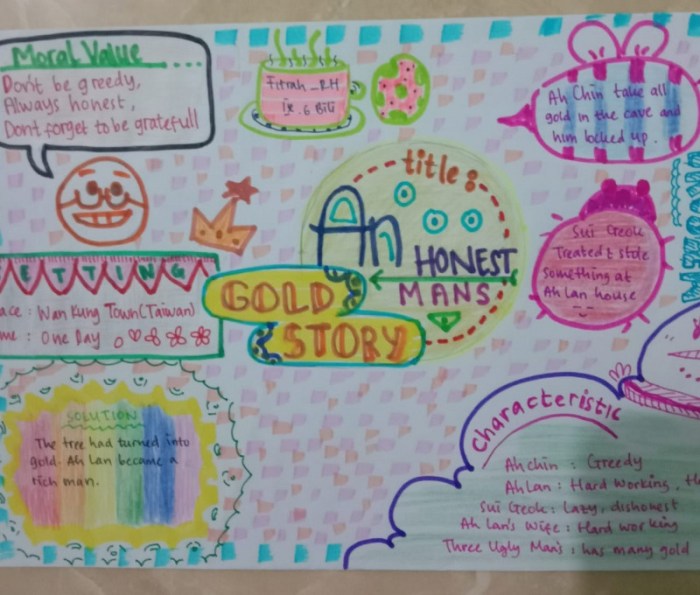 Moral Value
Don't be greedy,
Always honest,
Dont forget to be gratefull
Fitrah _ RH
title :
An
HONEST
MANS
GOLD
STORY
Ah Chin take all
gold in the cave and
him locked up.
Sui Geok
Treated & stole
something at
Ah Lan house
ETTING
ace : Wan Kung Town (Taiwan)
me : One Day
SOLUTION
The tree had turned into
gold. Ah Lan became a
rich man.
Characteristic
Ah chin : Greedy
Ah Lan : Hard working, H
Sui Geok : Lazy, dishonest
Ah Lan's Wife : Hard working
Three Ugly Man's : has many gold